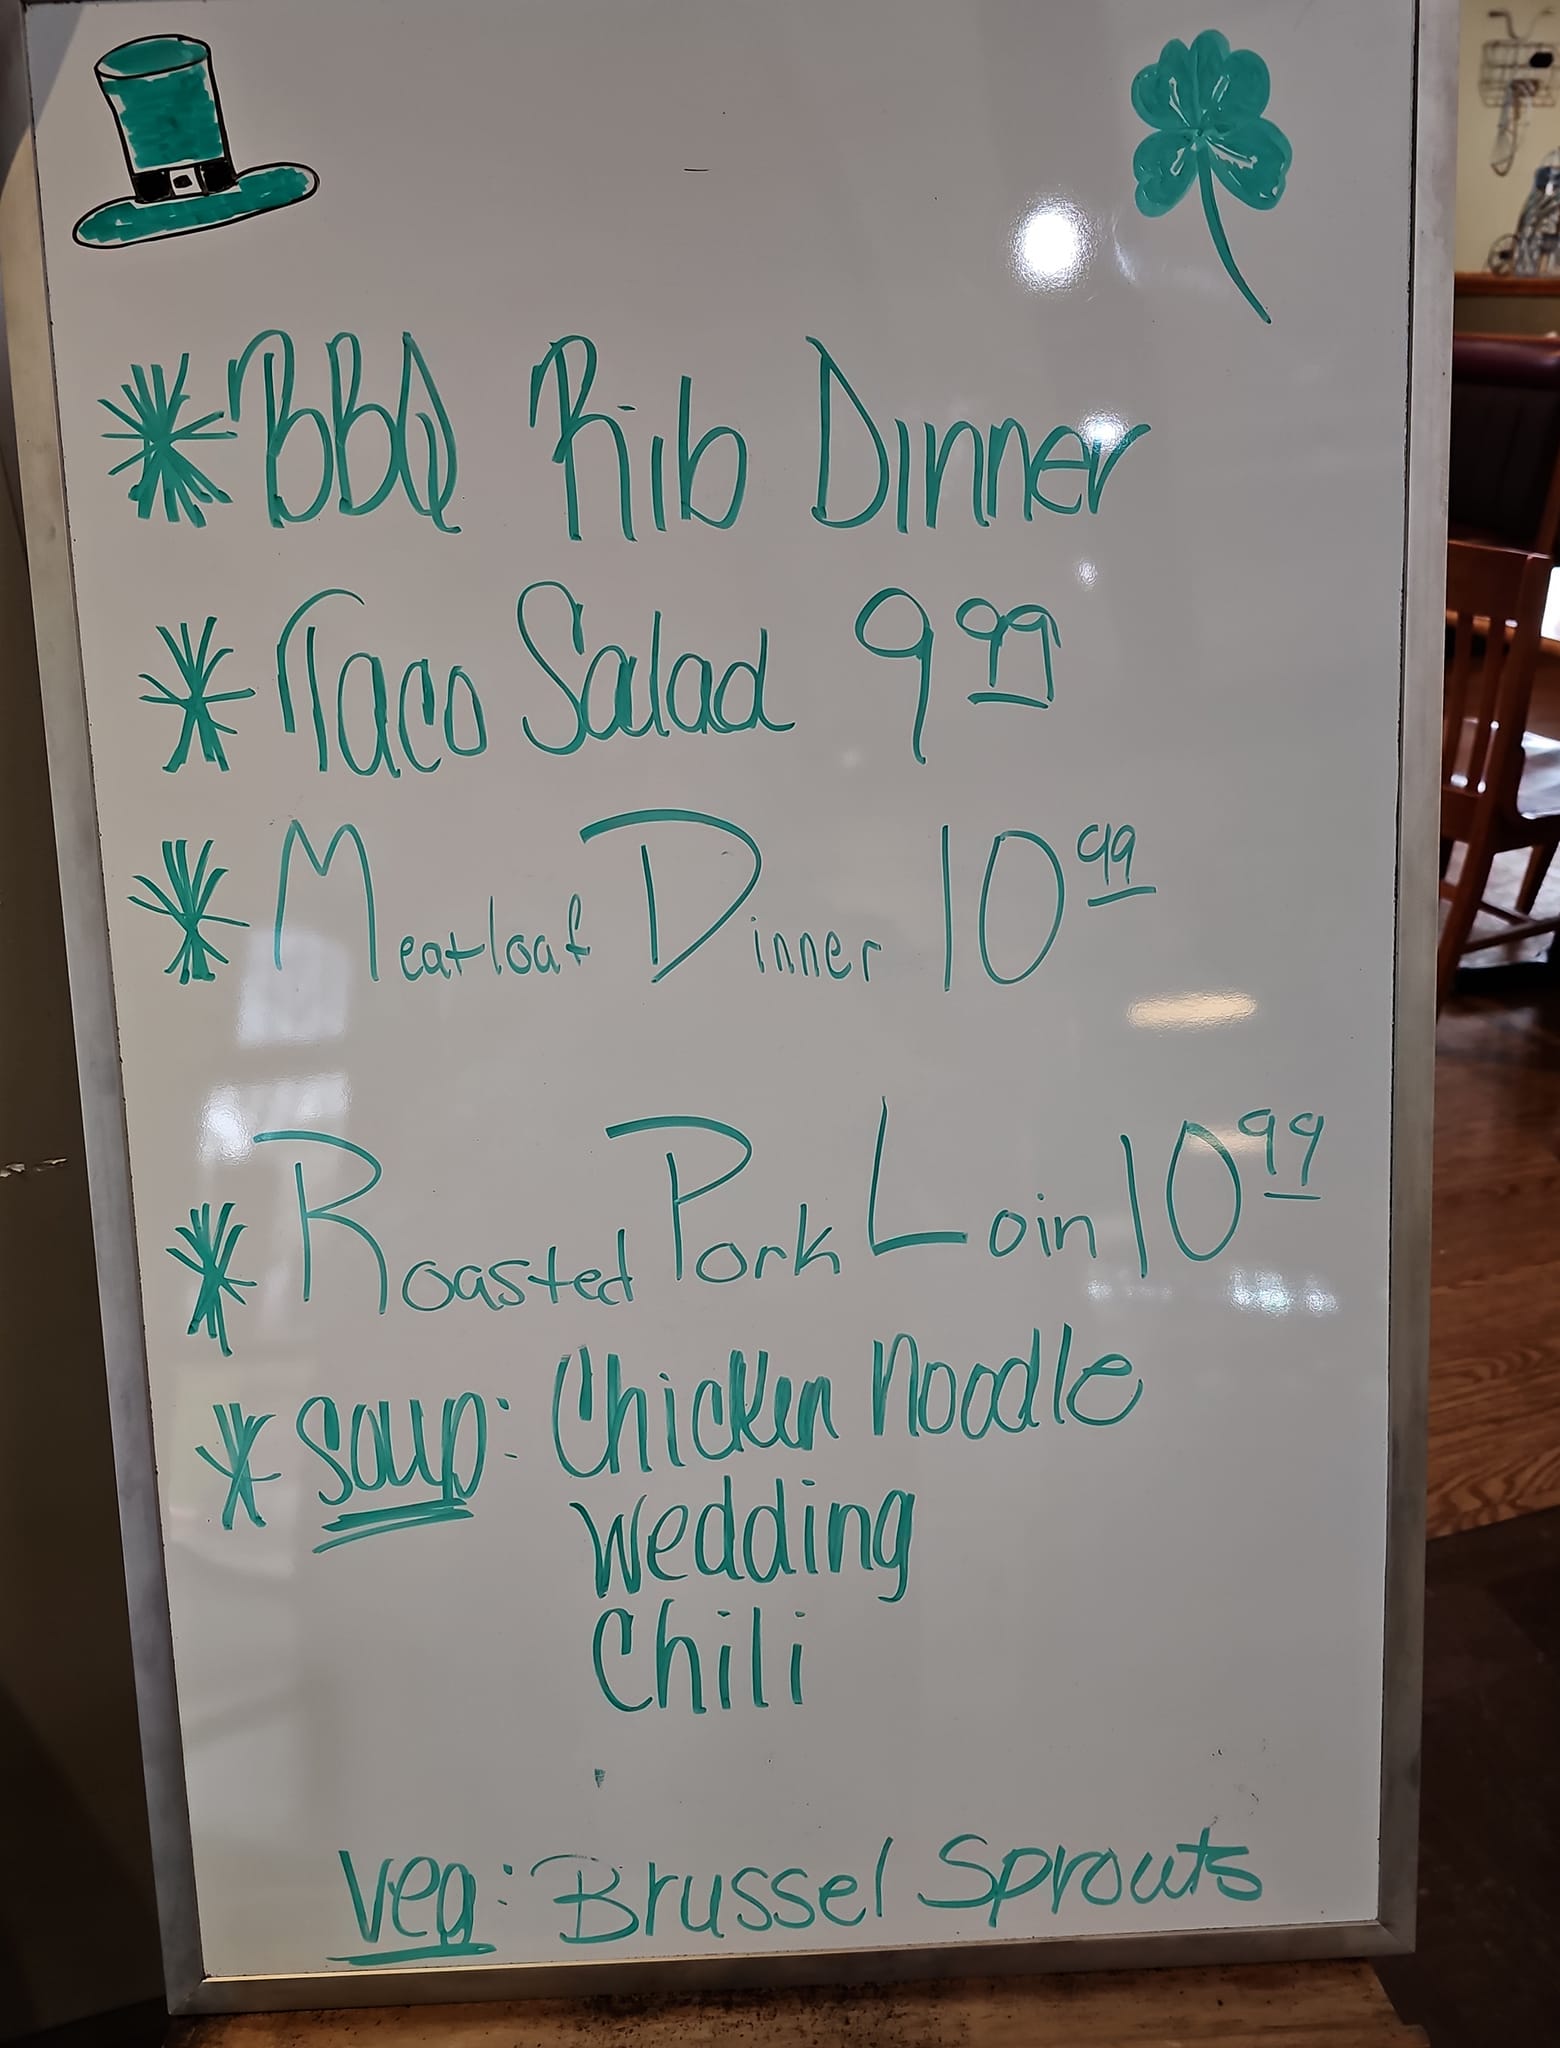 BBQ Rib Dinner
Taco Salad 9 99
Meatloaf Dinner 10 99
Roasted Pork Loin 10 99
Soup: Chicken Noodle
Wedding
Chili
Veg: Brussel Sprouts